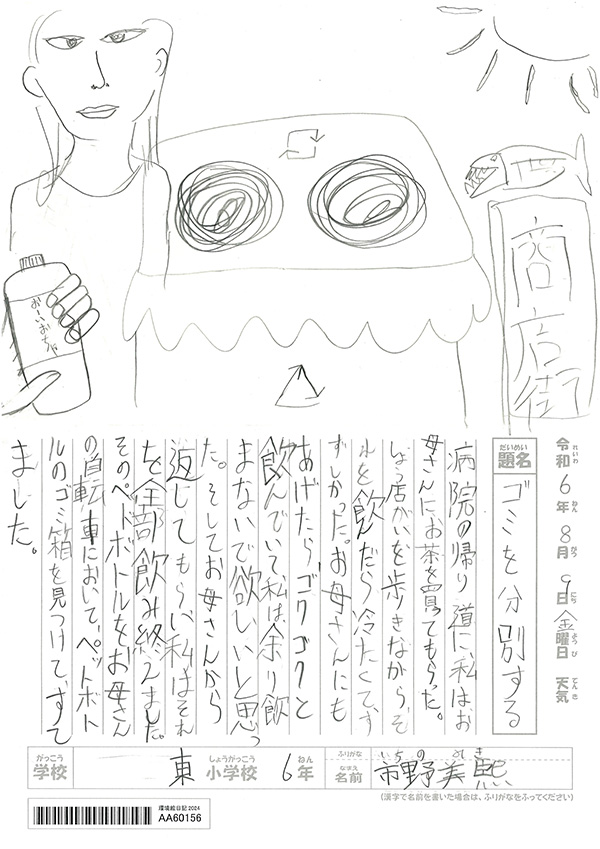 おーいお茶
商店街
令和6年8月9日金曜日 天気
れいわ ねん がつ にち ようび てんき
だいめい
題名
ゴミを分別する
病院の帰り道に、私はお
母さんにお茶を買ってもらった。
しょう店がいを歩りきながら、そ
れを飲んだら冷たくて、す
ずしかった。お母さんにも
あげたら、ゴクゴクと
飲んでいて私は、余り飲
まないで欲しいと思っ
た。そしてお母さんから
返してもらい、私はそれ
を全部飲み終えました。
そのペットボトルをお母さん
の自転車において、ペットボト
ルのゴミ箱を見つけて、すて
ました。
がっこう しょうがっこう ねん ふりがな いちの みき
学校 東 小学校 6年 なまえ 名前 市野美熙
(漢字で名前を書いた場合は、ふりがなをふってください)
環境絵日記2024
AA60156